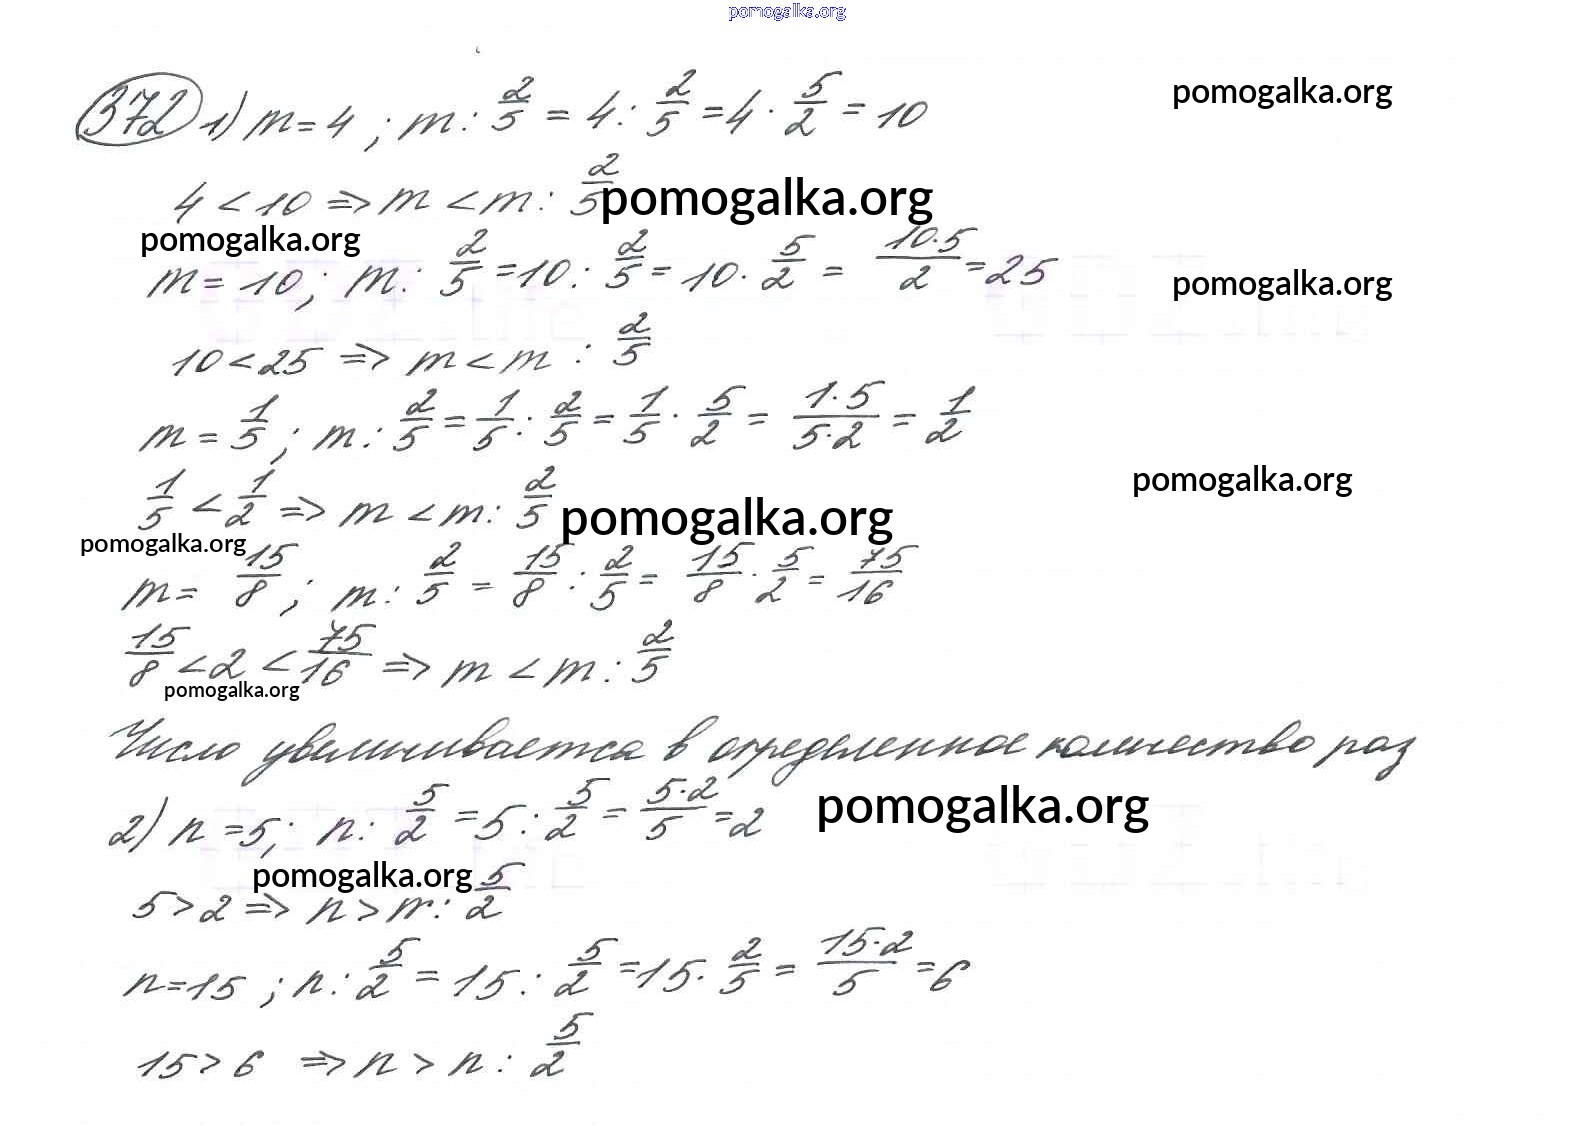 pomogalka.org
372 1) m = 4 ; m : 2/5 = 4 : 2/5 = 4 · 5/2 = 10
pomogalka.org
4 < 10 => m < m : 2/5
pomogalka.org
pomogalka.org
m = 10 ; m : 2/5 = 10 : 2/5 = 10 · 5/2 = 10·5/2 = 25
pomogalka.org
10 < 25 => m < m : 2/5
m = 1/5 ; m : 2/5 = 1/5 : 2/5 = 1/5 · 5/2 = 1·5/5·2 = 1/2
pomogalka.org
1/5 < 1/2 => m < m : 2/5
pomogalka.org
pomogalka.org
m = 15/8 ; m : 2/5 = 15/8 : 2/5 = 15/8 · 5/2 = 75/16
15/8 < 2 < 75/16 => m < m : 2/5
pomogalka.org
Число увеличивается в определенное количество раз
2) n = 5 ; n : 5/2 = 5 : 5/2 = 5·2/5 = 2
pomogalka.org
pomogalka.org
5 > 2 => n > n : 5/2
n = 15 ; n : 5/2 = 15 : 5/2 = 15 · 2/5 = 15·2/5 = 6
15 > 6 => n > n : 5/2